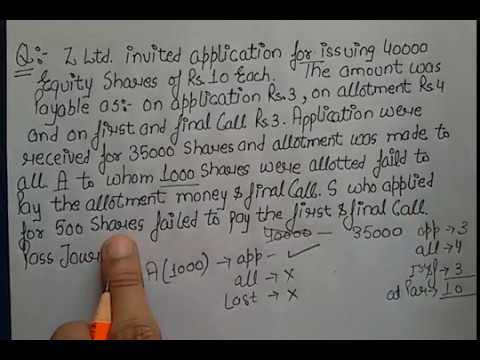 Q:- Z Ltd. invited application for issuing 40000
Equity Shares of Rs. 10 Each. The amount was
Payable as:- on application Rs. 3, on allotment Rs 4
and on first and final Call Rs 3. Application were
received for 35000 Shares and allotment was made to
all. A to whom 1000 Shares were allotted faild to
Pay the allotment money & final Call. S who applied
for 500 Shares failed to pay the first & final Call.
Pass Jour
40000 - 35000
app → 3
all → 4
→ 3
at Par → 10
A (1000) → app - ✓
all → x
Last → x